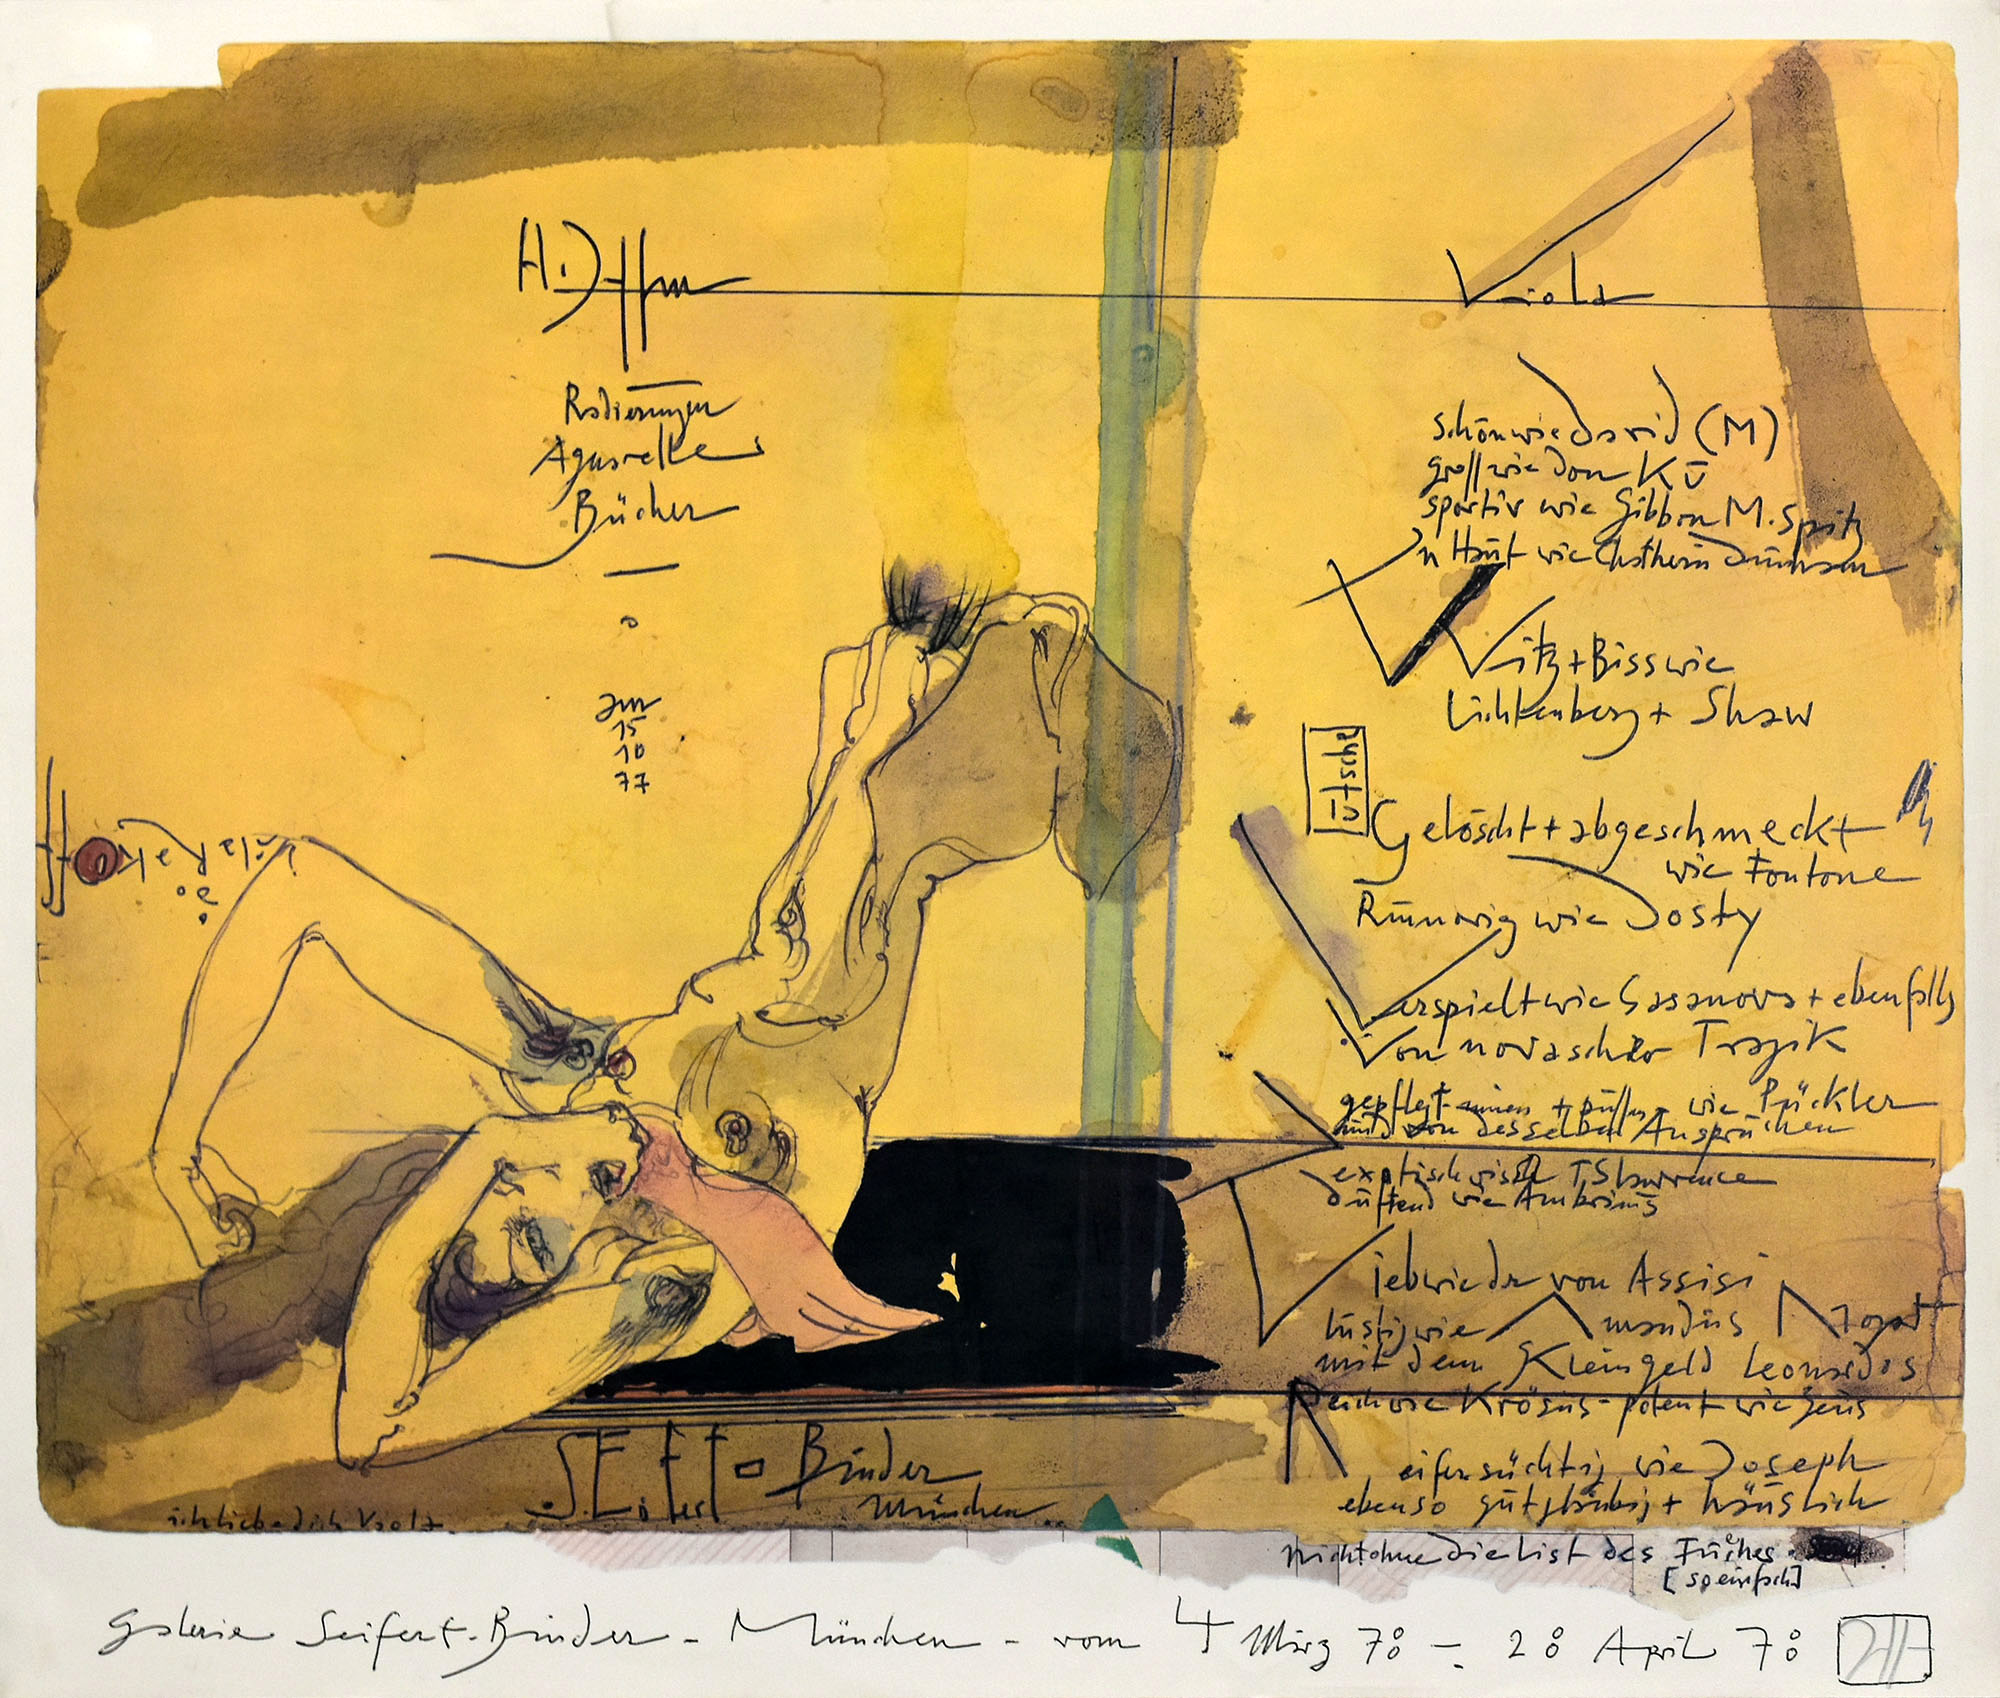 H. Dffm
Radierungen
Aquarelle
Bücher
am
15
10
77
Viola
schön wie david (M)
groß wie don Kū
sportiv wie Gibbon M. Spitz
'n Haut wie
Witz + Biss wie
Lichtenberg + Shaw
Gelöscht + abgeschmeckt
wie Fontane
wie Dosty
Verspielt wie Casanova + ebenfalls
Von Tragik
gepflegt wie Pückler
und von desselben Ansprüchen
exotisch wie TS Lawrence
duftend wie
Lieb wie dr von Assisi
lustig wie Amandus Mozart
mit dem Kleingeld Leonardos
Reich wie Krösus - potent wie Zeus
eifersüchtig wie Joseph
ebenso gutgläubig + häuslich
nicht ohne die List des Fuches
S.Eifert - Binder
München
ich liebe dich
Galerie Seifert-Binder - München - vom 4 März 78 - 28 April 78